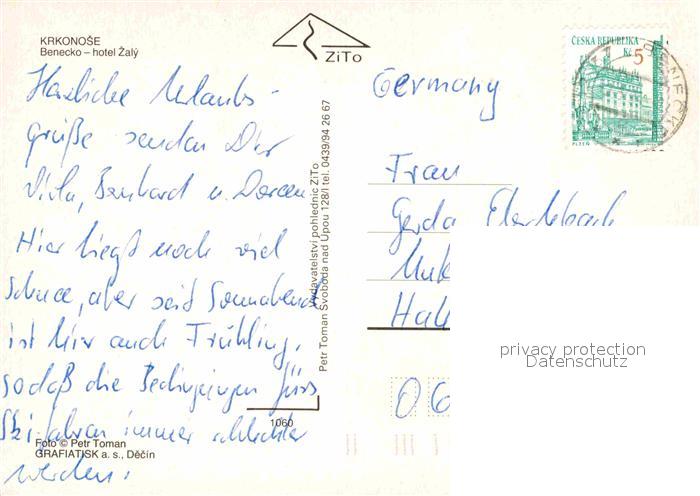 KRKONOŠE
Benecko – hotel Žalý
ZiTo
Herzliche Urlaubs-
grüße senden Dir
Viola, Bernhard u. Doreen.
Hier liegt noch viel
Schnee, aber seit Sonnabend
ist hier auch Frühling,
sodaß die Bedingungen fürs
Skifahren immer schlechter
werden.
1060
Foto © Petr Toman
GRAFIATISK a. s., Děčín
Vydavatelství pohlednic ZiTo
Petr Toman Svoboda nad Úpou 1281 tel. 0439/94 26 67
ČESKÁ REPUBLIKA
Kč 5
PLZEŇ
BENECKO
Germany
Frau
Gerda
Hall
06
privacy protection
Datenschutz